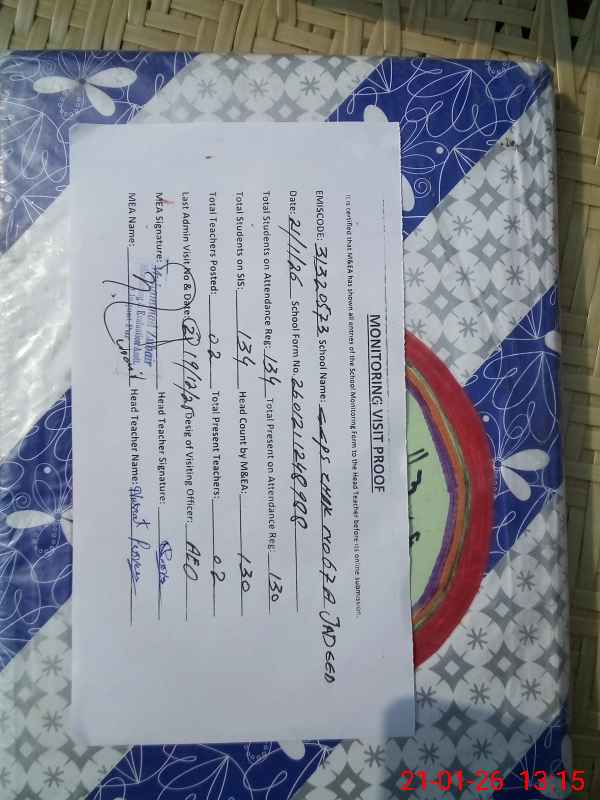 MONITORING VISIT PROOF
It is certified that M&EA has shown all entries of the School Monitoring Form to the Head Teacher before its online submission.
EMISCODE: 31320573 School Name: GGPS CHAK NO 67 A JADEED
Date: 21/1/26 School Form No. 260121248988
Total Students on Attendance Reg: 134 Total Present on Attendance Reg: 130
Total Students on SIS: 134 Head Count by M&EA: 130
Total Teachers Posted: 02 Total Present Teachers: 02
Last Admin Visit No & Date: (2) 19/12/25 Desig of Visiting Officer: AEO
MEA Signature: Head Teacher Signature:
MEA Name: Head Teacher Name: Nusrat Perveen
21-01-26 13:15